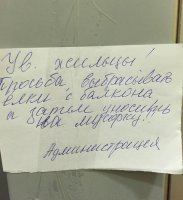 Ув. жильцы!
Просьба, выбрасывая
ёлки с балкона
а затем уносить
на мусорку.
Администрация